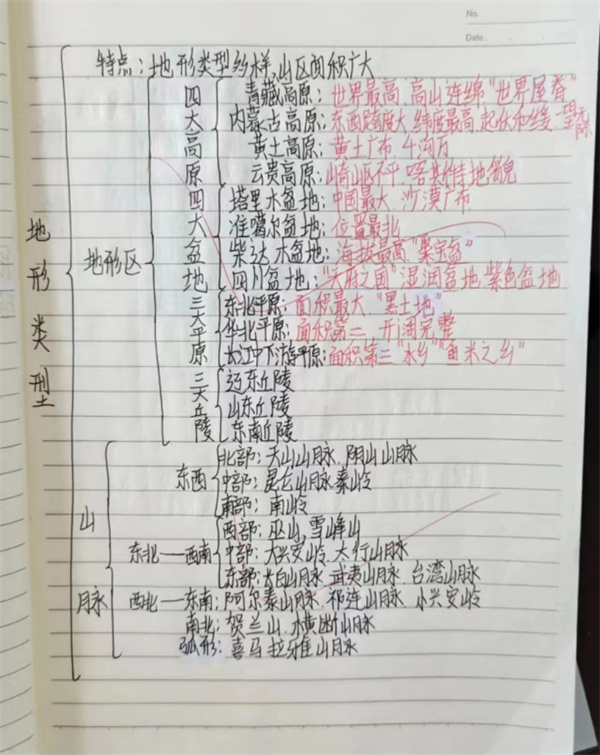 No.
Date.
地形类型
特点：地形类型多样,山区面积广大
地形区
四大高原
青藏高原：世界最高.高山连绵"世界屋脊"
内蒙古高原：东西跨度大.纬度最高.起伏和缓.
黄土高原：黄土广布.千沟万
云贵高原：崎岖不平.喀斯特地貌
四大盆地
塔里木盆地：中国最大.沙漠广布
准噶尔盆地：位置最北
柴达木盆地：海拔最高"聚宝盆"
四川盆地："天府之国"湿润盆地.紫色盆地
三大平原
东北平原：面积最大."黑土地"
华北平原：面积第二.开阔完整
长江中下游平原：面积第三"水乡""鱼米之乡"
三大丘陵
辽东丘陵
山东丘陵
东南丘陵
山脉
东西
北部：天山山脉.阴山山脉
中部：昆仑山脉.秦岭
南部：南岭
东北—西南
西部：巫山.雪峰山
中部：大兴安岭.太行山脉
东部：长白山脉.武夷山脉.台湾山脉
西北—东南：阿尔泰山脉.祁连山脉.小兴安岭
南北：贺兰山.横断山脉
弧形：喜马拉雅山脉